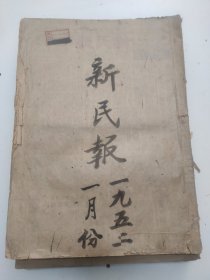 新民報
一九五二
一月份